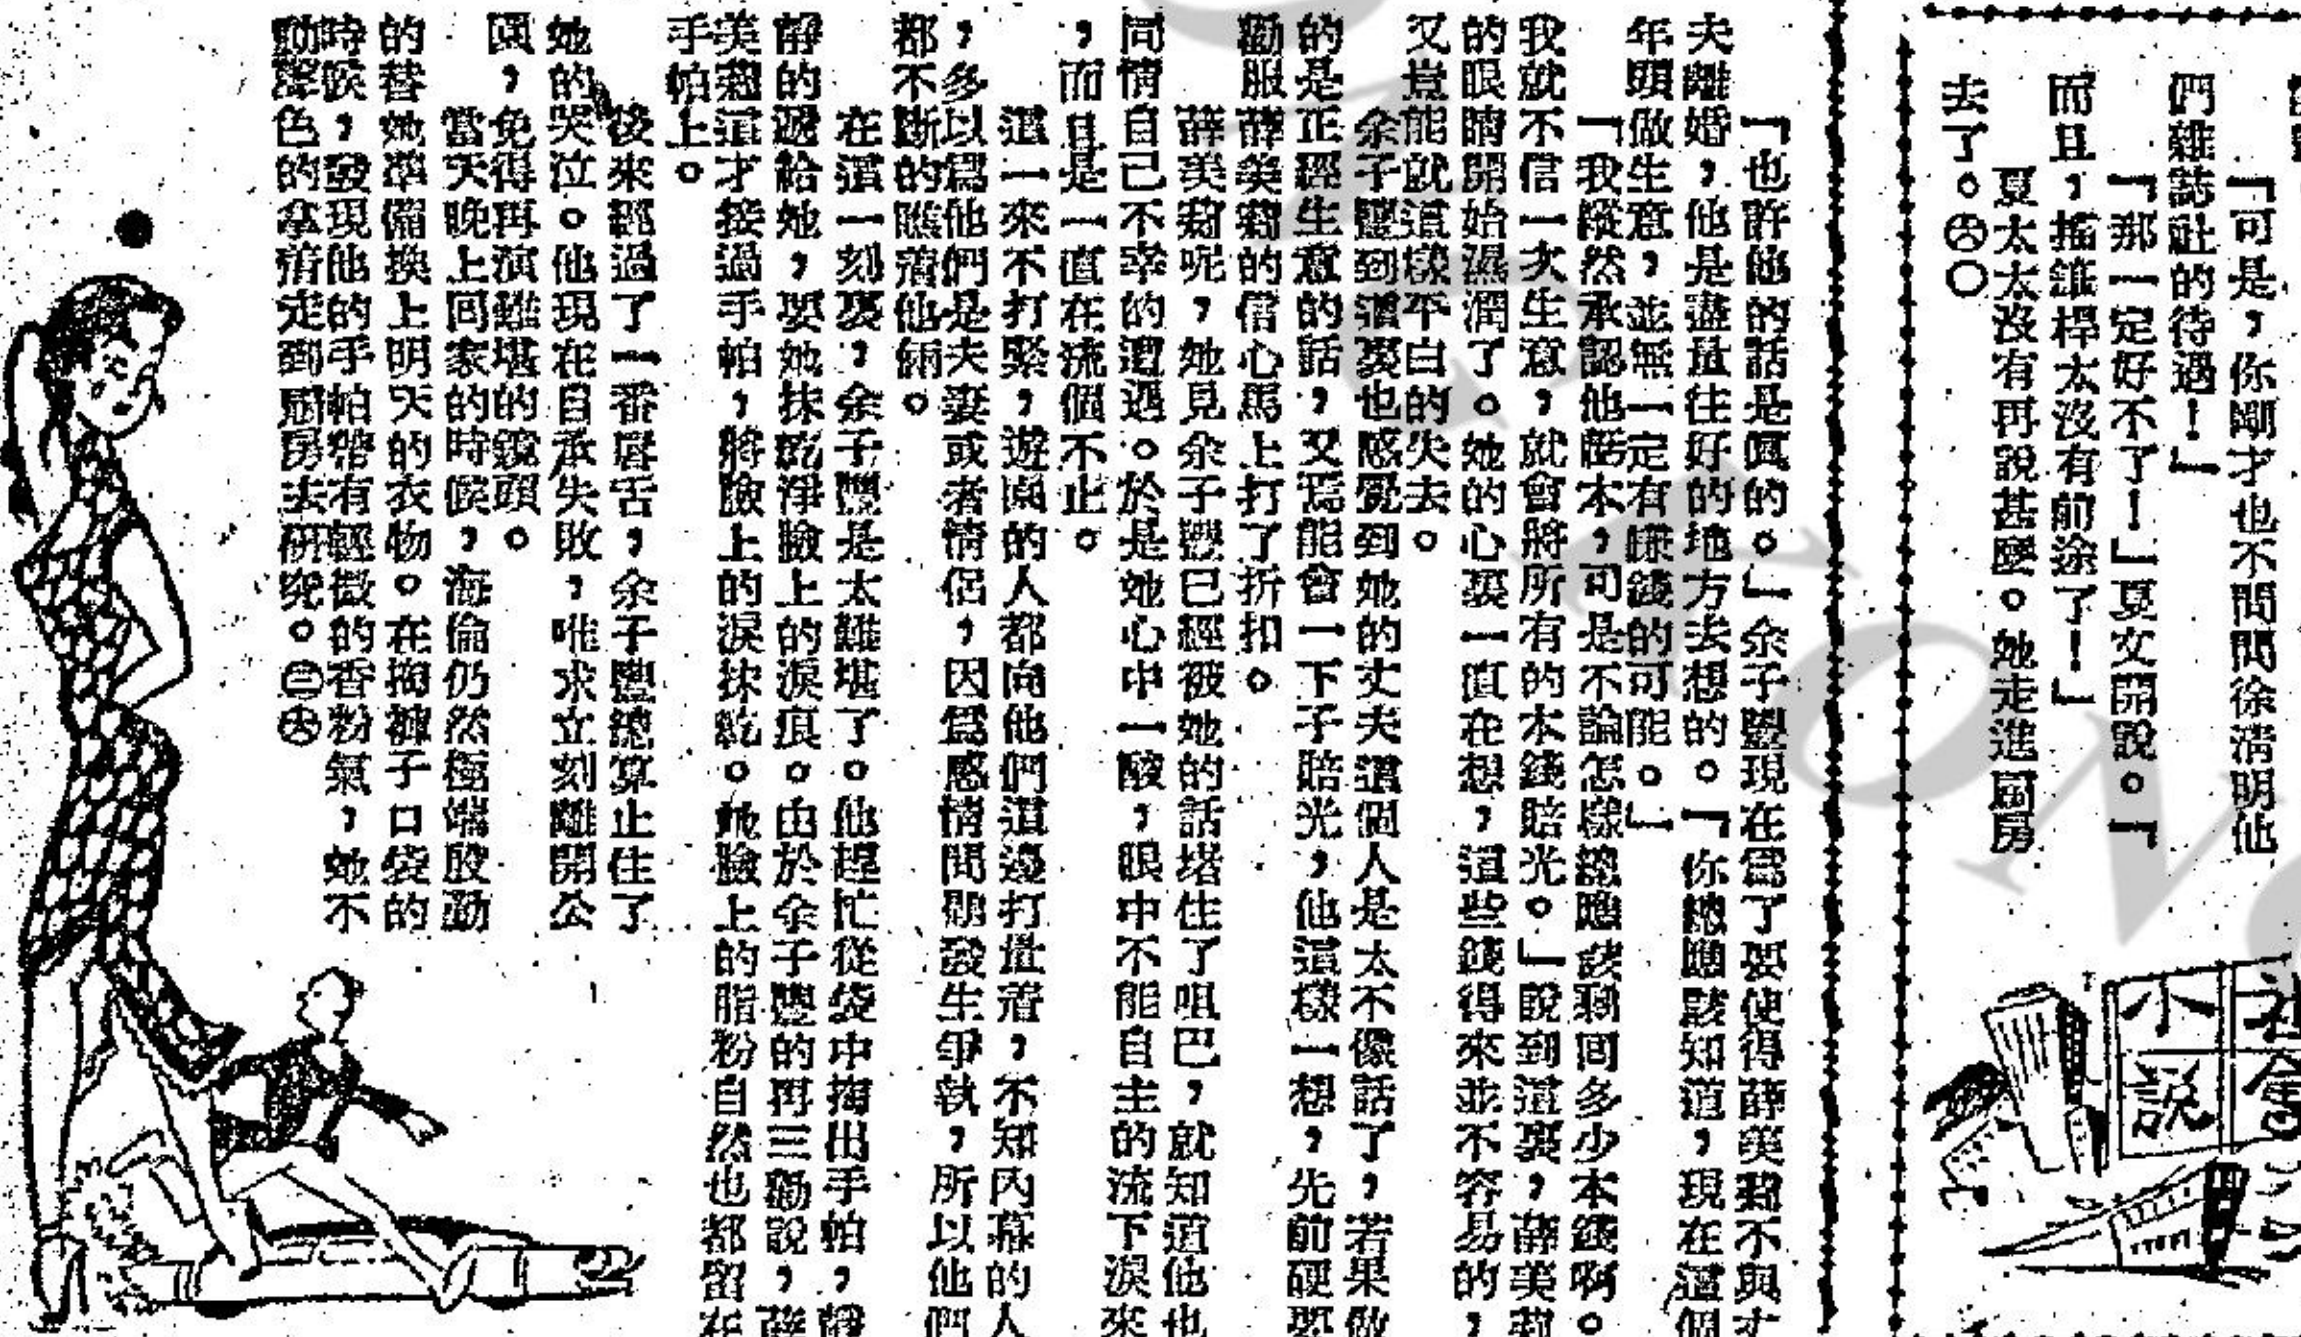 「可是，你剛才也不問問徐清明他
們雜誌社的待遇！」
「那一定好不了！」夏文開說。「
而且，搖筆桿太沒有前途了！」
夏太太沒有再說甚麼。她走進厨房
去了。㊅〇
社會
小說
「也許他的話是眞的。」余子豐現在爲了要使得薛美莉不與丈
夫離婚，他是盡量往好的地方去想的。「你總應該知道，現在這個
年頭做生意，並無一定有賺錢的可能。」
「我縱然承認他虧本，可是不論怎樣總應該剩回多少本錢啊。
我就不信一次生意，就會將所有的本錢賠光。」說到這裏，薛美莉
的眼睛開始濕潤了。她的心裏一直在想，這些錢得來並不容易的，
又豈能就這樣平白的失去。
余子豐到這裏也感覺到她的丈夫這個人是太不像話了，若果做
的是正經生意的話，又焉能會一下子賠光，他這樣一想，先前硬要
勸服薛美莉的信心馬上打了折扣。
薛美莉呢，她見余子豐已經被她的話堵住了咀巴，就知道他也
同情自己不幸的遭遇。於是她心中一酸，眼中不能自主的流下淚來
，而且是一直在流個不止。
這一來不打緊，遊園的人都向他們這邊打量着，不知內幕的人
，多以爲他們是夫妻或者情侶，因爲感情問題發生爭執，所以他們
都不斷的瞧着他倆。
在這一刻裏，余子豐是太難堪了。他趕忙從袋中掏出手帕，靜
靜的遞給她，要她抹乾淨臉上的淚痕。由於余子豐的再三勸說，薛
美莉這才接過手帕，將臉上的淚抹乾。她臉上的脂粉自然也都留在
手帕上。
後來經過了一番唇舌，余子豐總算止住了
她的哭泣。他現在自承失敗，唯求立刻離開公
園，免得再演難堪的鏡頭。
當天晚上回家的時候，海倫仍然極端殷勤
的替她準備換上明天的衣物。在掏褲子口袋的
時候，發現他的手帕帶有輕微的香粉氣，她不
動聲色的拿着走到厨房去研究。㊂㊅